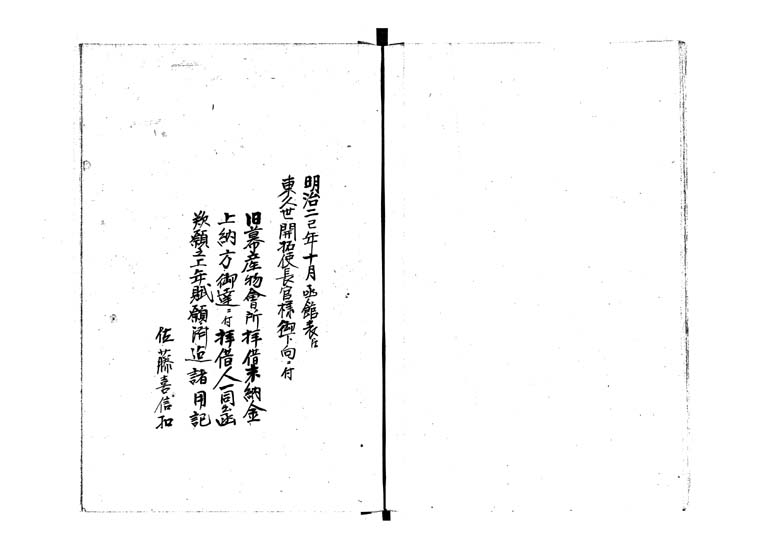 明治二己年十月函館表江
東久世開拓使長官様御下向ニ付
旧幕産物會所拝借未納金
上納方御達ニ付拝借人一同函
歎願之上年賦願済迄諸用記
佐藤喜信扣